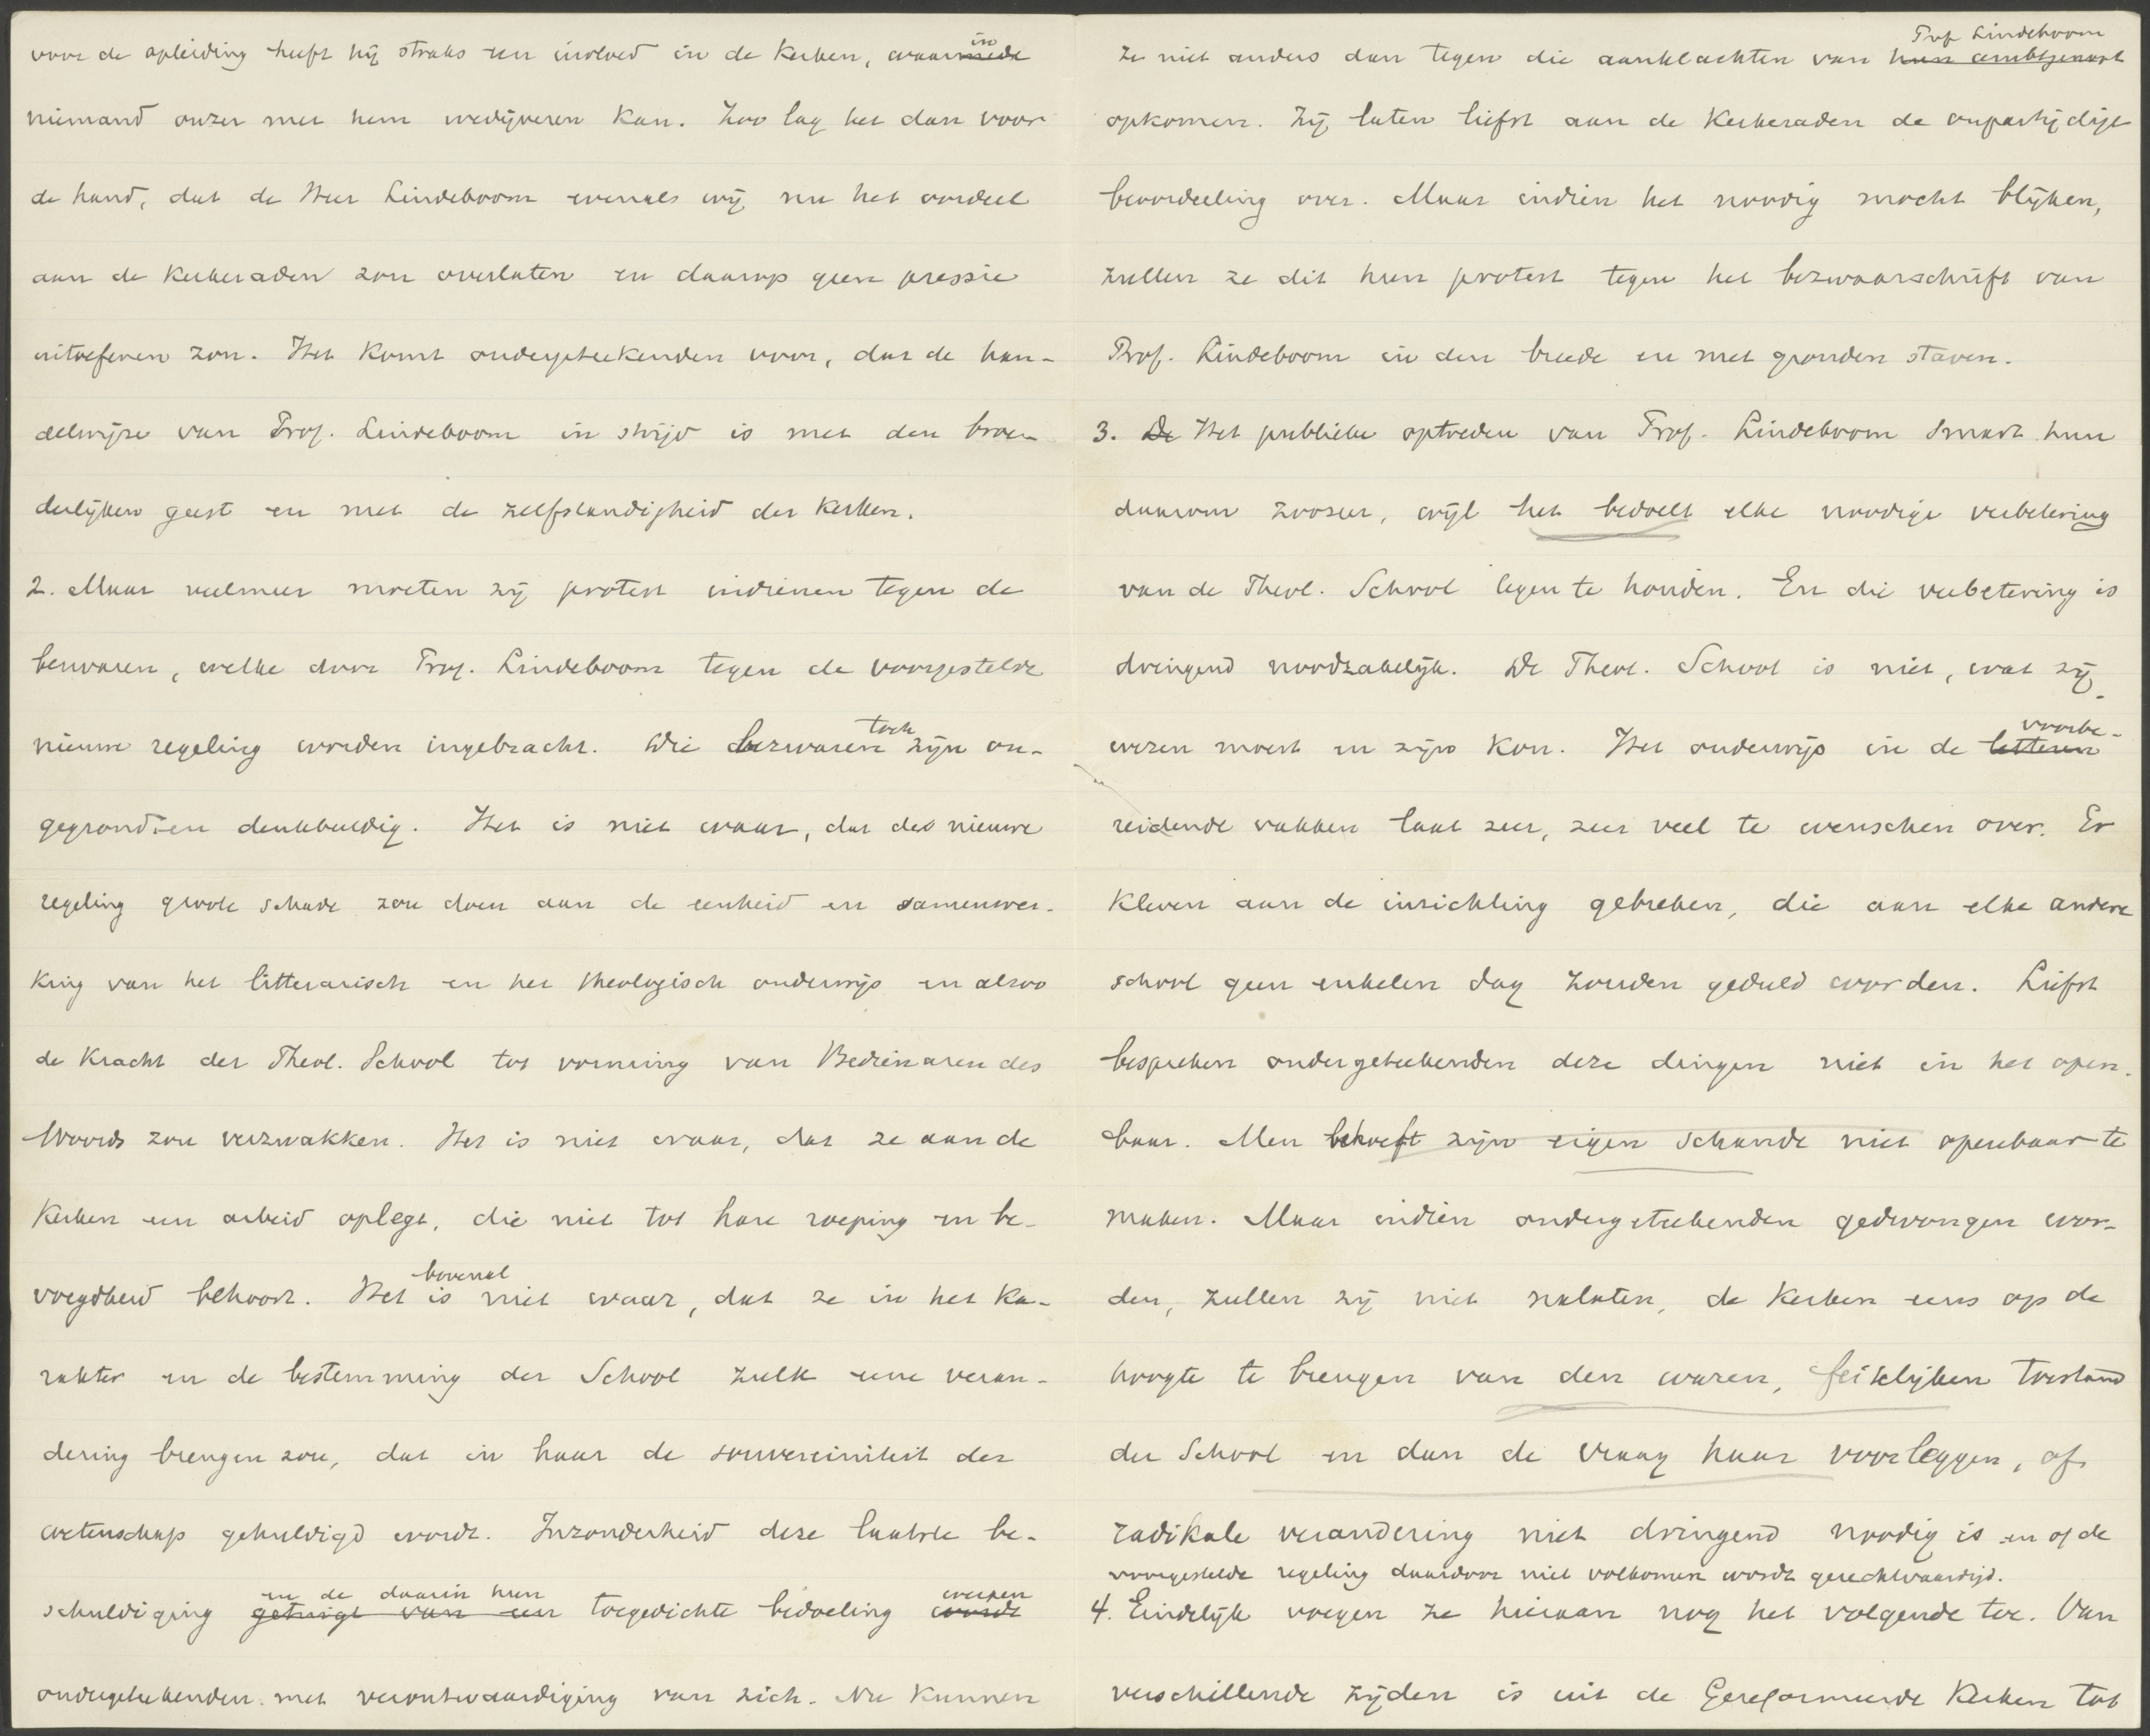 voor de opleiding heeft hij straks een invloed in de kerken, waarin
niemand onzer met hem wedijveren kan. Zoo lag het dan voor
de hand, dat de Heer Lindeboom evenals wij nu het oordeel
aan de kerkeraden zou overlaten en daarop geen pressie
uitoefenen zou. Het komt ondergeteekenden voor, dat de han-
delwijze van Prof. Lindeboom in strijd is met den broe-
derlijken geest en met de zelfstandigheid der kerken.
2. Maar veelmeer moeten zij protest indienen tegen de
bezwaren, welke door Prof. Lindeboom tegen de voorgestelde
nieuwe regeling worden ingebracht. Die bezwaren toch zijn on-
gegrond en denkbeeldig. Het is niet waar, dat des nieuwe
regeling groote schade zou doen aan de eenheid en samenwer-
king van het litterarisch en het theologisch onderwijs en alzoo
de kracht der Theol. School tot vorming van Bedienaren des
Woords zou verzwakken. Het is niet waar, dat ze aan de
kerken een arbeid oplegt, die niet tot hare roeping en be-
voegdheid behoort. Het is bovenal niet waar, dat ze in het ka-
rakter en de bestemming der School zulk eene veran-
dering brengen zou, dat in haar de souvereiniteit der
wetenschap gehuldigd wordt. Inzonderheid deze laatste be-
schuldiging en de daarin hun toegedichte bedoeling werpen
ondergeteekenden met verontwaardiging van zich. Nu kunnen
ze niet anders dan tegen die aanklachten van Prof Lindeboom
opkomen. Zij laten liefst aan de Kerkeraden de onpartijdige
beoordeeling over. Maar indien het noodig mocht blijken,
zullen ze dit hun protest tegen het bezwaarschrift van
Prof. Lindeboom in den breede en met gronden staven.
3. De Het publieke optreden van Prof. Lindeboom smart hun
daarom zoozeer, wijl het bedoelt elke noodige verbetering
van de Theol. School tegen te houden. En die verbetering is
dringend noodzakelijk. De Theol. School is niet, wat zij
wezen moest en zijn kon. Het onderwijs in de voorbe-
reidende vakken laat zeer, zeer veel te wenschen over. Er
kleven aan de inrichting gebreken, die aan elke andere
school geen enkelen dag zouden geduld worden. Liefst
bespreken ondergeteekenden deze dingen niet in het open-
baar. Men behoeft zijn eigen schande niet openbaar te
maken. Maar indien ondergeteekenden gedwongen wor-
den, zullen zij niet nalaten, de kerken eens op de
hoogte te brengen van den waren, feitelijken toestand
der School en dan de vraag haar voorleggen, of
radikale verandering niet dringend noodig is en of de
voorgestelde regeling daardoor niet volkomen wordt gerechtvaardigd.
4. Eindelijk voegen ze hieraan nog het volgende toe. Van
verschillende zijden is uit de Gereformeerde Kerken tot